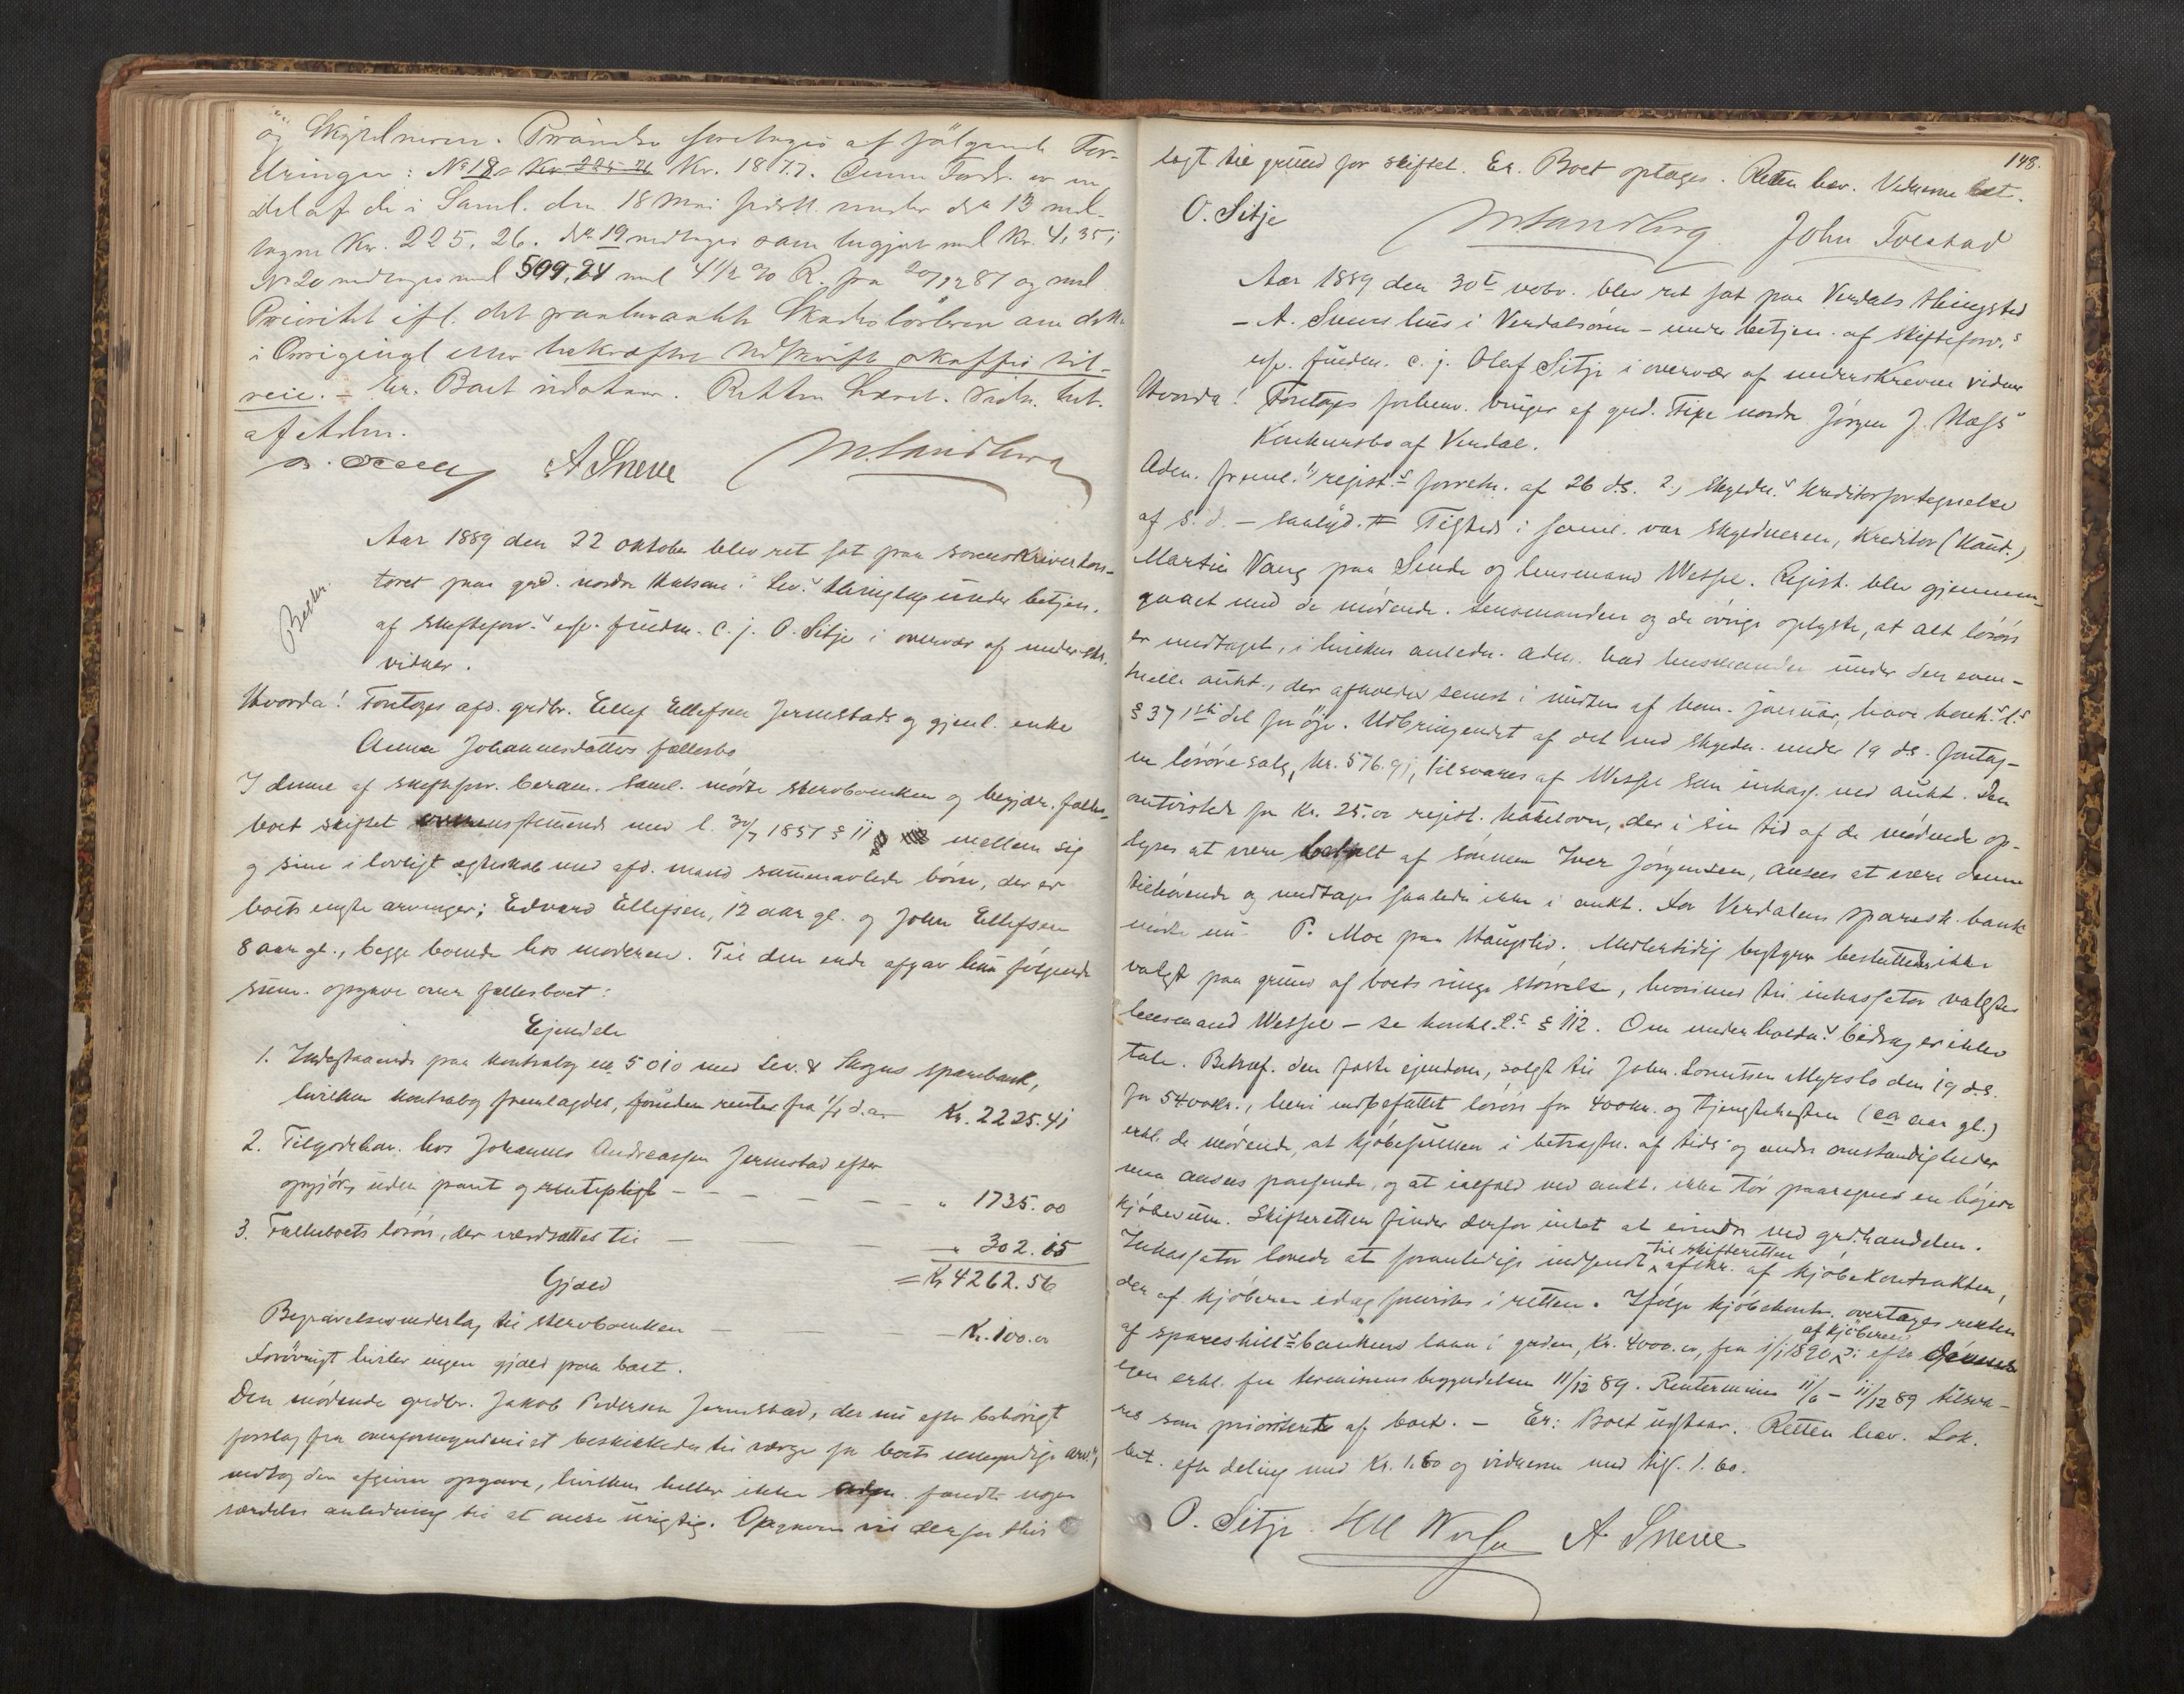 og Skyldneren. Prøvende foretages af følgende For-
dringer: No 18, Kr. 225.26 Kr. 1877. Denne Fordr. er en
del af de i Saml. den 18 Mai sidstl. under do 13 med-
tagne Kr. 225,26. do 19 medtages som bevist med Kr. 4,35;
No 20 medtages med 509,24 med 4 1/2 % R. fra 20/12 87 og med
Prioritet ifl. det paaberaabte Skadesløsbrev om dette
i Original eller bekræftet Udskrift skaffes til-
veie. – Er. Boet udstaar. Retten hævet. Vidn. bet.
af Adm.
A Sneve M. Sandberg
Aar 1889 den 22 oktober blev ret sat paa sorenskriverkon-
toret paa grd. nordre i Lev.s thinglag under betjen.
af skifteforv.s efr. fuldm. c. j. O. Sitje i overvær af underskr.
vidner.
Hvorda! Foretages afd. grdbr. Ellef Ellefsen Jermstads og gjenl. enke
Anna Johannesdatters fællesbo
I denne af skifteforv. beram. saml. mødte stervboenken og begjær. fælles-
boet skiftet overensstemmende med l. 30/7 1851 § 11 mellem sig
og sine i lovligt egteskab med afd. mand sammenavlede børn, der er
boets eneste arvinger; Edvard Ellefsen, 12 aar gl. og John Ellefsen
8 aar gl., begge boende hos moderen. Til den ende afgav hun følgende
sum. opgave over fællesboet:
Ejendele
1. Indestaaende paa kontrabog no. 5010 med Lev. & Skogns sparebank,
hvilken kontrabog fremlagdes, foruden renter fra 1/1 d.a. Kr. 2225.41
2. Tilgodehav. hos Johannes Andreassen Jermstad efter
opgjør, uden pant og rentepligt – – – – – " 1735.00
3. Fællesboets løsøre, der værdsattes til – – – " 302.15
= Kr 4262.56
Gjæld
Begravelsesvederlag til stervboenken – – – Kr. 100.00
Forøvrigt hviler ingen gjæld paa boet.
Den mødende grdbr. Jakob Pedersen Jermstad, der nu efter behørigt
forslag fra overformynderiet beskikkedes til værge for boets umyndige arv.,
vedtog den afgivne opgave, hvilken heller ikke adm. fandt nogen
særdeles anledning til at anse urigtig. Opgaven vil derfor blive
148.
lagt til grund for skiftet. Er. Boet optages. Retten hæv. Vidnerne bet.
O. Sitje M Sandberg John Tolstad
Aar 1889 den 30te novbr. blev ret sat paa Verdals thingsted
– A. Sneves hus i Verdalsøren – under betjen. af skifteforv.s
efr. fuldm. c. j. Olaf Sitje i overvær af underskrevne vidner
Hvorda! Foretages forhenv. bruger af grd. nordre Jørgen J.
Konkursbo af Verdal.
Adm. freml. 1, regist.s forretn. af 26 d.s. 2, skyldn.s kreditorfortegnelse
af s. d. – saalyd. Tilstede i saml. var skyldneren, kreditor (kand.)
Martin Vang paa Sende og lensmand Wessel. Regist. blev gjennem-
gaaet med de mødende. Lensmanden og de øvrige oplyste, at alt løsøre
er medtaget, i hvilken anledn. adm. bad lensmanden under den even-
tuelle aukt., der afholdes senest i midten af kom. januar, have konk.s l.s
§ 37 1ste del for øje. Udbringendet af det ved skyldn. under 19 ds. foretag-
ne løsøresalg, Kr. 576.91, tilsvares af Wessel som inkass. ved aukt. Den
antvistede for Kr. 25.00 regist. kakelovn, der i sin tid af de mødende op-
lyses at være betalt af sønnen Iver Jørgensen, ansees at være denne
tilhørende og medtages saaledes ikke i aukt. For Verdalens spareskill.bank
mødte nu P. Moe paa Haugslid. Midlertidig bestyrer besluttedes ikke
valgt paa grund af boets ringe størrelse, hvorimod til inkassator valgtes
lensmand Wessel – se konk. l.s § 112. Om underholdn.s bidrag er ikke
tale. Betræf. den faste ejendom, solgt til John Myrslo den 19 d.s.
for 5400 kr., heri indbefattet løsøre for 400 kr. og tjenestehesten (en aar gl.)
erkl. de mødende, at kjøbesummen i betragtn. af tids- og andre omstændigheder
maa ansees passende, og at ialfald ved aukt. ikke tør paaregnes en højere
kjøbesum. Skifteretten finder derfor intet at erindre ved grd.handelen.
Inkassator lovede at foranledige indsendt til skifteretten afskr. af kjøbekontrakten,
der af kjøberen idag forevistes i retten. Ifølge kjøbekontr. overtages renten
af spareskill.s bankens laan i gaarden, Kr. 4000.00, fra 1/1 1890 af kjøberen, efter
egen erkl. fra terminens begyndelse 11/12 89. Renterminen 11/6 – 11/12 89 tilsva-
res som prioriteret af boet. – Er: Boet udstaar. Retten hæv. Lok.
bet. efter deling med Kr. 1.60 og vidnerne med tils. 1.60.
O. Sitje. A. Sneve